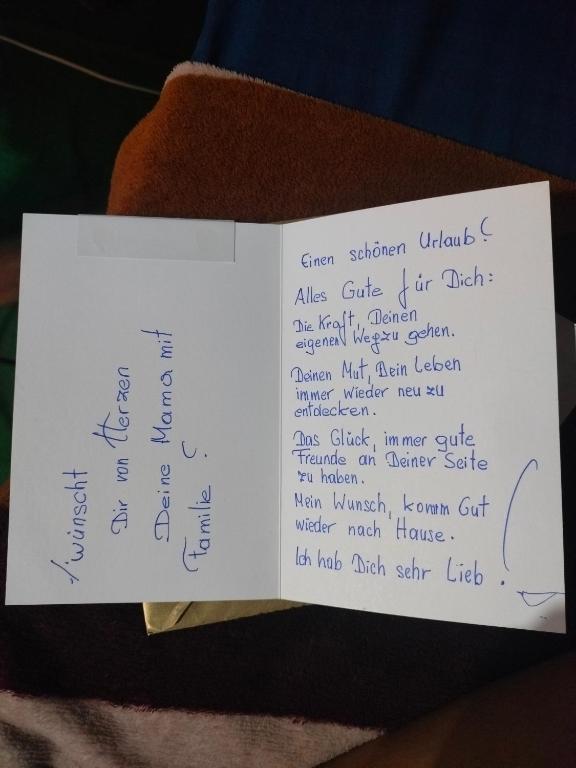 Einen schönen Urlaub!
Alles Gute für Dich:
Die Kraft, Deinen
eigenen Weg zu gehen.
Deinen Mut, Dein Leben
immer wieder neu zu
entdecken.
Das Glück, immer gute
Freunde an Deiner Seite
zu haben.
Mein Wunsch, komm Gut
wieder nach Hause.
Ich hab Dich sehr Lieb.
wünscht
Dir von Herzen
Deine Mama mit
Familie!